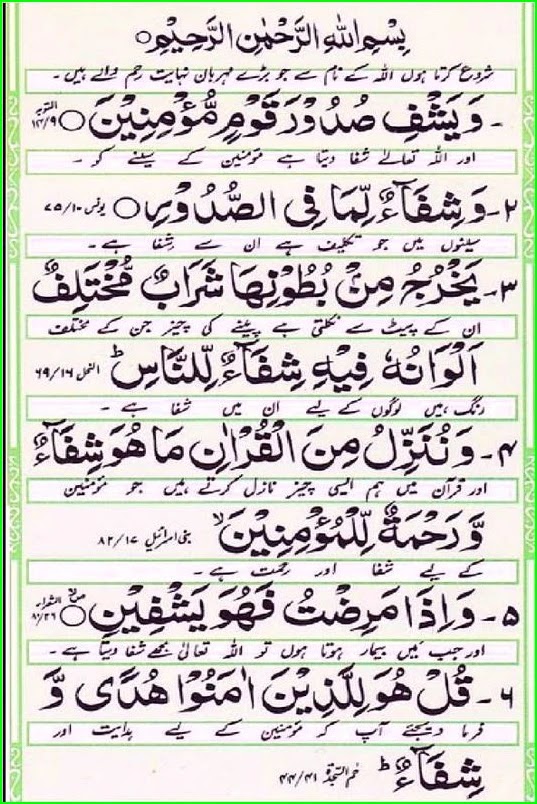 بِسْمِ اللهِ الرَّحْمٰنِ الرَّحِيْمِ ○
شروع کرتا ہوں اللہ کے نام سے جو بڑے مہربان نہایت رحم والے ہیں۔
۔ وَيَشْفِ صُدُوْرَ قَوْمٍ مُّؤْمِنِيْنَ ○ التوبہ ۱۴/۹
اور اللہ تعالےٰ شفا دیتا ہے مومنین کے سینے کو ۔
۲۔ وَشِفَآءٌ لِّمَا فِى الصُّدُوْرِ ○ یونس ۷۵/۱۰
سینوں میں جو تکلیف ہے ان سے شفا ہے ۔
۳۔ يَخْرُجُ مِنْۢ بُطُوْنِهَا شَرَابٌ مُّخْتَلِفٌ
ان کے پیٹ سے نکلتی ہے پینے کی چیز جن کے مختلف
اَلْوَانُهٗ فِيْهِ شِفَآءٌ لِّلنَّاسِ ؕ النحل ۶۹/۱۶
رنگ ہیں لوگوں کے لیے ان میں شفا ہے ۔
۴۔ وَنُنَزِّلُ مِنَ الْقُرْاٰنِ مَا هُوَ شِفَآءٌ
اور قرآن میں ہم ایسی چیز نازل کرتے ہیں جو مومنین
وَّرَحْمَةٌ لِّلْمُؤْمِنِيْنَ ۙ بنی اسرائیل ۸۲/۱۷
کے لیے شفا اور رحمت ہے ۔
۵۔ وَاِذَا مَرِضْتُ فَهُوَ يَشْفِيْنِ ○ الشعراء ۸۰/۲۶
اور جب میں بیمار ہوتا ہوں تو اللہ تعالیٰ مجھے شفا دیتا ہے ۔
۶۔ قُلْ هُوَ لِلَّذِيْنَ اٰمَنُوْا هُدًى وَّ
فرما دیجئے آپ کہ مومنین کے لیے ہدایت اور
شِفَآءٌ ؕ حٰم السجدۃ ۴۴/۴۱